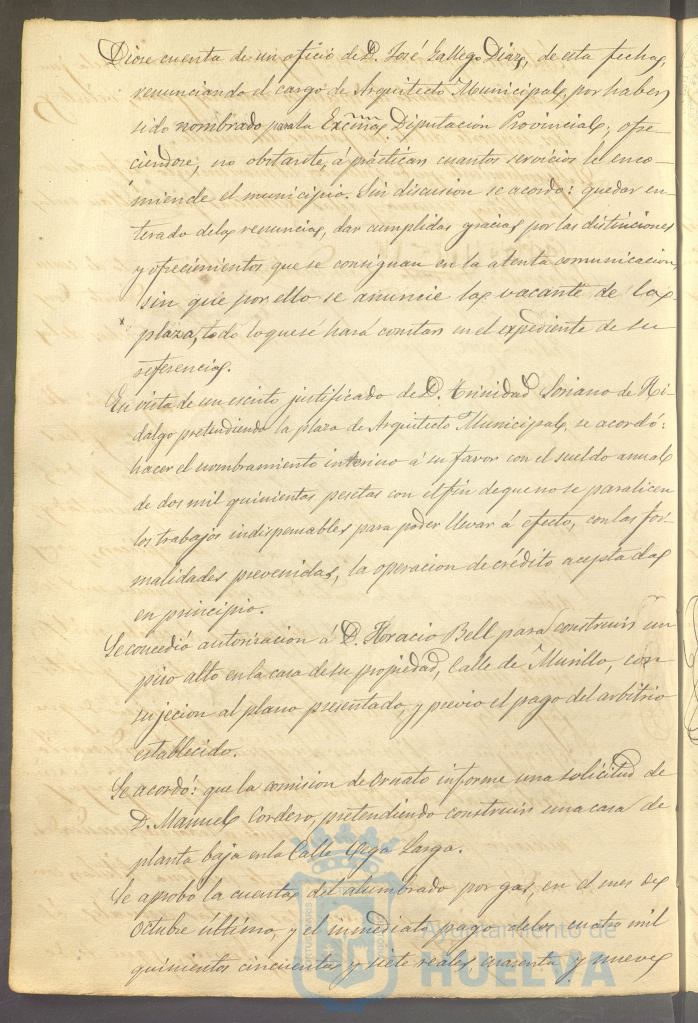 Diose cuenta de un oficio de D. José Gallego Diaz, de esta fecha,
renunciando el cargo de Arquitecto Municipal, por haber
sido nombrado para la Excma. Diputacion Provincial; ofre-
ciendose, no obstante, á practicar cuantos servicios le enco-
miende el municipio. Sin discusion se acordó: quedar en-
terado de la renuncia, dar cumplidas gracias por las distinciones
y ofrecimientos que se consignan en la atenta comunicacion,
sin que por ello se anuncie la vacante de la
plaza, todo lo que se hará constar en el expediente de su
referencia.
En vista de un escrito justificado de D. Trinidad Soriano de Hi-
dalgo pretendiendo la plaza de Arquitecto Municipal, se acordó:
hacer el nombramiento interino á su favor con el sueldo anual
de dos mil quinientas pesetas con el fin de que no se paralicen
los trabajos indispensables para poder llevar á efecto, con las for-
malidades prevenidas, la operacion de crédito aceptada
en principio.
Se concedió autorizacion á D. Horacio Bell para construir un
piso alto en la casa de su propiedad, Calle de Murillo, con
sujecion al plano presentado, y previo el pago del arbitrio
establecido.
Se acordó: que la comision de Ornato informe una solicitud de
D. Manuel Cordero, pretendiendo construir una casa de
planta baja en la Calle Vega Larga.
Se aprobó la cuenta del alumbrado por gas, en el mes de
Octubre último, y el inmediato pago de los cuatro mil
quinientos cincuenta y siete reales, cuarenta y nueve
Ayuntamiento de
HUELVA